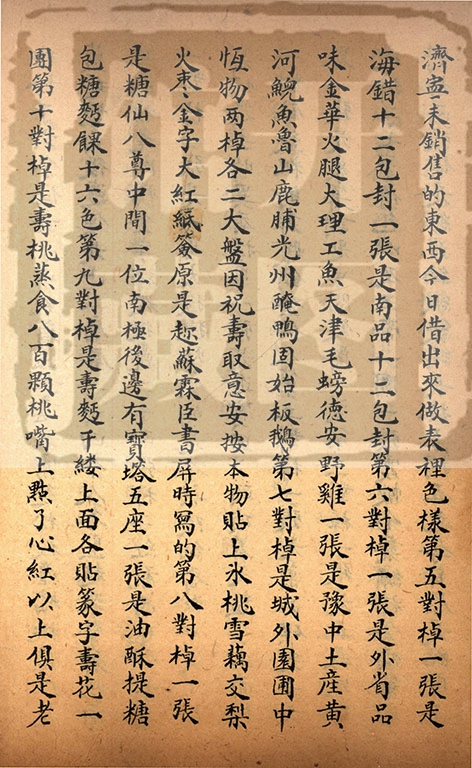 濟寧未銷售的東西今日借出來做表裡色樣第五對棹一張是
海錯十二包封一張是南品十二包封第六對棹一張是外省品
味金華火腿大理工魚天津毛螃德安野雞一張是豫中土産黄
河鯇魚魯山鹿脯光州醃鴨固始板鵝第七對棹是城外園圃中
恆物两棹各二大盤因祝壽取意安按本物貼上氷桃雪藕交梨
火枣金字大紅紙簽原是趂蘇霖臣書屏時寫的第八對棹一張
是糖仙八尊中間一位南極後邊有寶塔五座一張是油酥提糖
包糖麪餜十六色第九對棹是壽麪千縷上面各貼篆字壽花一
團第十對棹是壽桃蒸食八百顆桃嘴上點了心紅以上俱是老